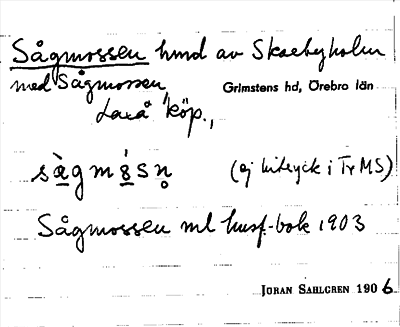 Sågmossen hmd av Skaebyholm
med Sågmossen Grimstens hd, Örebro län
Laxå köp.,
sàgmåsn (ej intryck i TrMS)
Sågmossen ml husf-bok 1903
JÖRAN SAHLGREN 1906.